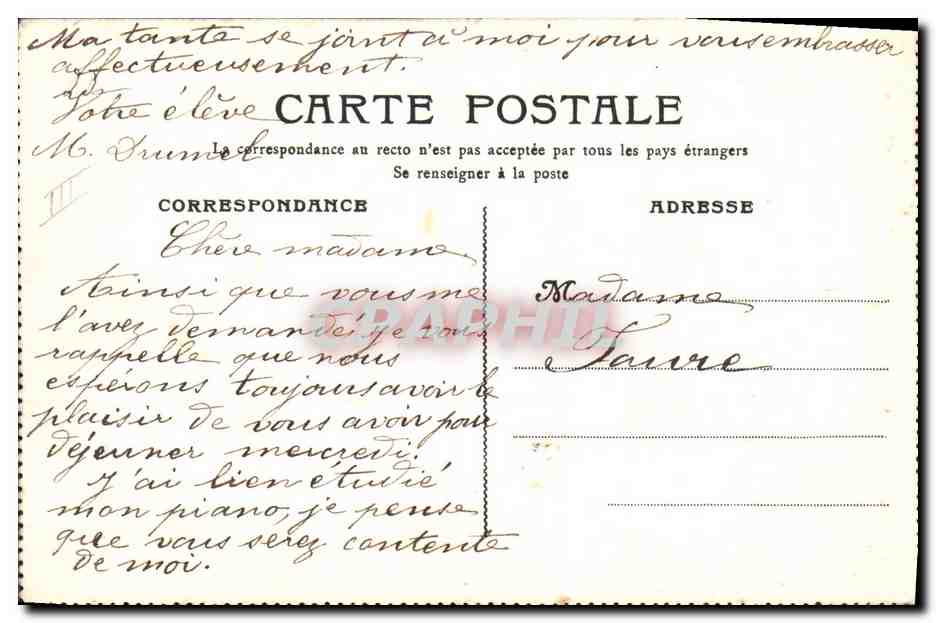 Ma tante se joint à moi pour vous embrasser
affectueusement.
Votre élève
M. Drumel
III
CARTE POSTALE
La correspondance au recto n'est pas acceptée par tous les pays étrangers
Se renseigner à la poste
CORRESPONDANCE
Chère madame
Ainsi que vous me
l'avez demandé, je vous
rappelle que nous
espérons toujours avoir le
plaisir de vous avoir pour
déjeuner mercredi.
J'ai bien étudié
mon piano, je pense
que vous serez contente
de moi.
ADRESSE
Madame
Favre
CPAPHIL